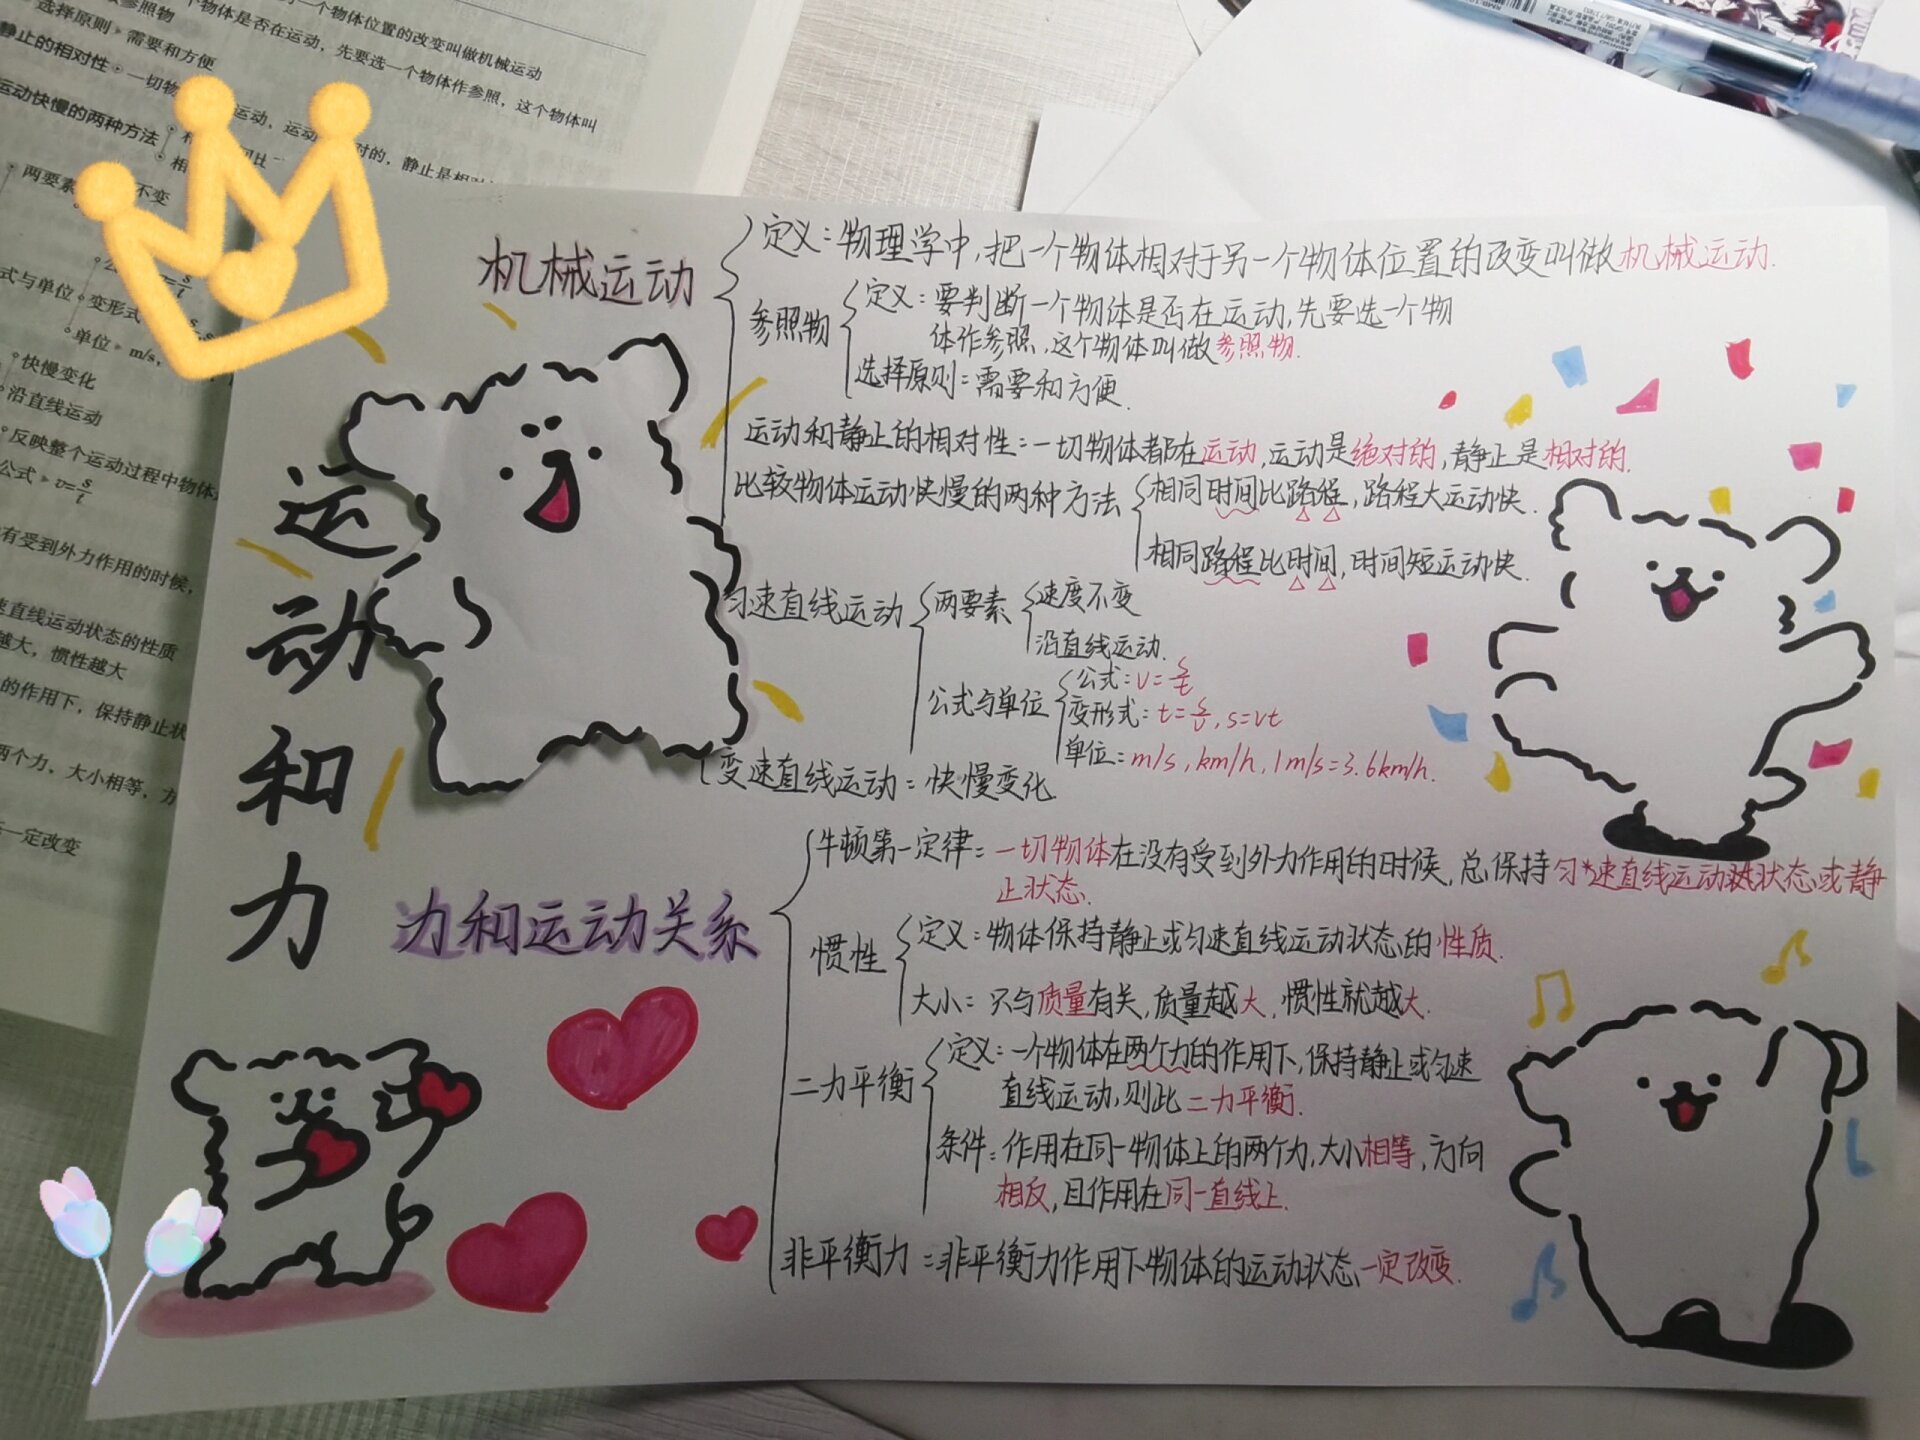 一个物体位置的改变叫做机械运动
个物体是否在运动，先要选一个物体作参照，这个物体叫
选择原则 需要和方便
静止的相对性 一切物
运动，运动
对的，静止是相对
运动快慢的两种方法
两要素
不变
式与单位
变形式
单位 m/s，
快慢变化
沿直线运动
反映整个运动过程中物体
公式 v=s/t
有受到外力作用的时候，
速直线运动状态的性质
越大，惯性越大
的作用下，保持静止状
两个力，大小相等，方
一定改变
运动和力
机械运动
定义：物理学中，把一个物体相对于另一个物体位置的改变叫做机械运动.
参照物
定义：要判断一个物体是否在运动，先要选一个物
体作参照，这个物体叫做参照物.
选择原则：需要和方便.
运动和静止的相对性：一切物体都在运动，运动是绝对的，静止是相对的.
比较物体运动快慢的两种方法
相同时间比路程，路程大运动快.
相同路程比时间，时间短运动快.
匀速直线运动
两要素
速度不变
沿直线运动.
公式与单位
公式：v=s/t
变形式：t=s/v，s=vt
单位：m/s，km/h，1m/s=3.6km/h.
变速直线运动：快慢变化
力和运动关系
牛顿第一定律：一切物体在没有受到外力作用的时候，总保持匀*速直线运动状态或静
止状态.
惯性
定义：物体保持静止或匀速直线运动状态的性质.
大小：只与质量有关，质量越大，惯性就越大.
二力平衡
定义：一个物体在两个力的作用下，保持静止或匀速
直线运动，则此二力平衡.
条件：作用在同一物体上的两个力，大小相等，方向
相反，且作用在同一直线上.
非平衡力：非平衡力作用下物体的运动状态一定改变.